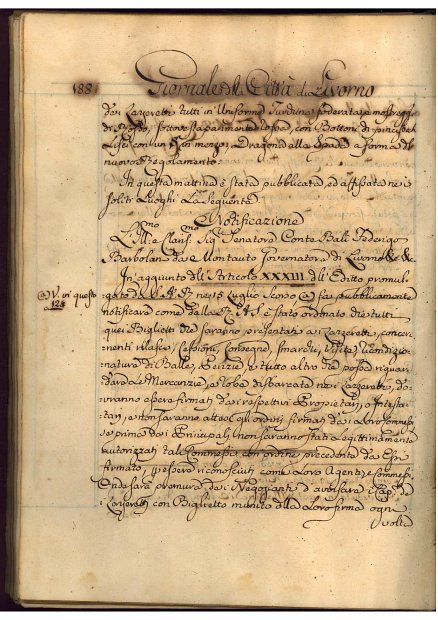 188
Giornale della Città di Livorno
dei Lazzeretti tutti in Uniforme Turchino foderata, e mostreggi
di Rosso, sottoveste parimente rossa, con Bottoni di princisbech
Lisci con un in mezzo, e Dragona alla Spada a forma del
nuovo Regolamento.
In questa mattina è stata pubblicata, ed affissata nei
soliti Luoghi La Seguente
Notificazione
L'Illmo e Clarismo Sigre Senatore Conte Balì Federigo
Barbolani da Montauto Governatore di Livorno &c &c
In aggiunta all'Articolo XXXIII dell'Editto promul
gato da S. A. R. ne 15 Luglio Scorso @ fa pubblicamente
@ V. in questo
124
notificare come dalla R. A. S. è stato ordinato che tutti
quei Biglietti che saranno presentati ai Lazzeretti, concer
nenti rilasci, Cessioni, Consegne, smarchi, Visite, Condizio
natura di Balle, Perizie, e tutto altro che possa riguar
dare Le Mercanzie, e roba sbarcata nei Lazzeretti, do
vranno essere firmati dai respettivi Proprietari, o Intesta
tari, e non saranno attesi gli ordini firmati dai Loro Commessi
se prima dai Principali non saranno stati Legittimamente
autorizzati tali Commessi con ordine precedente da Essi
firmato, per essere riconosciuti come Loro Agenti, e Commessi.
E sarà premura dei Negozianti d'avvisare i Cap. de
i Lazzeretti con Biglietto munito della Loro firma ogni
volta